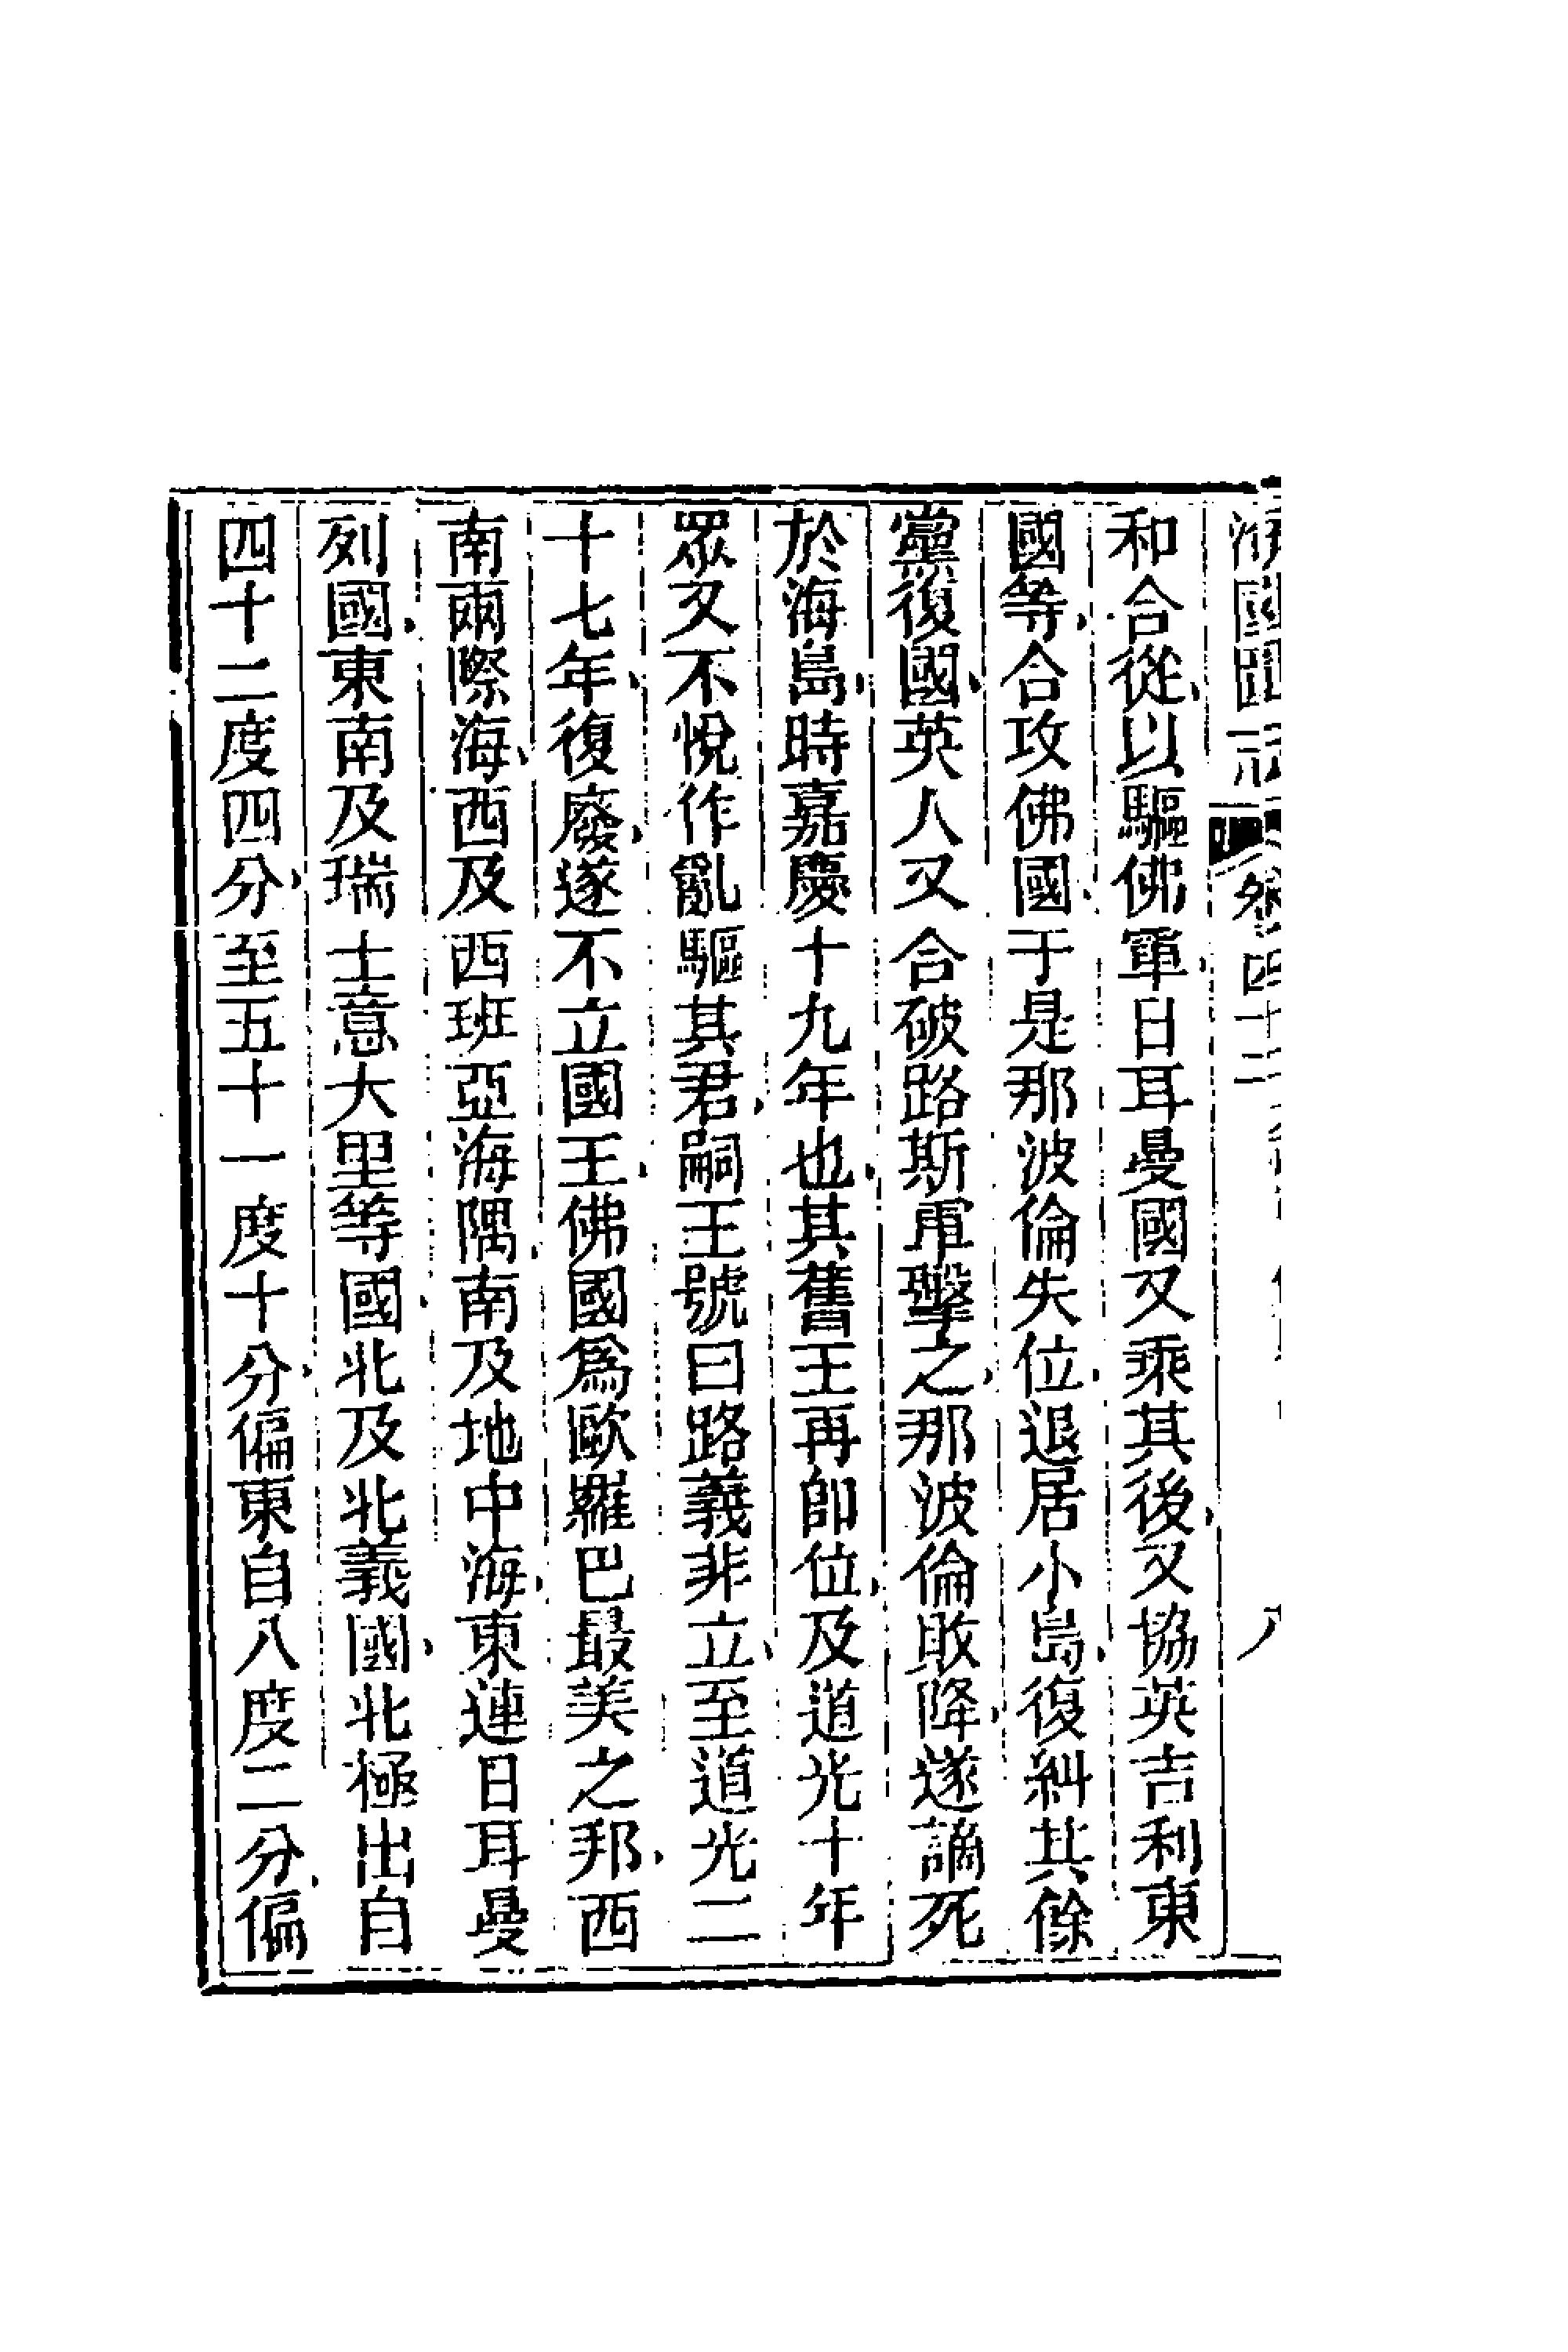 海國圖志 卷四十二 八
和合從以驅佛軍日耳曼國又乘其後又協英吉利東
國等合攻佛國于是那波倫失位退居小島復糾其餘
黨復國英人又合破路斯軍擊之那波倫敗降遂謫死
於海島時嘉慶十九年也其舊王再卽位及道光十年
眾又不悅作亂驅其君嗣王號曰路義非立至道光二
十七年復廢遂不立國王佛國爲歐羅巴最美之邦西
南兩際海西及西班亞海隅南及地中海東連日耳曼
列國東南及瑞士意大里等國北及北義國北極出自
四十二度四分至五十一度十分偏東自八度二分偏